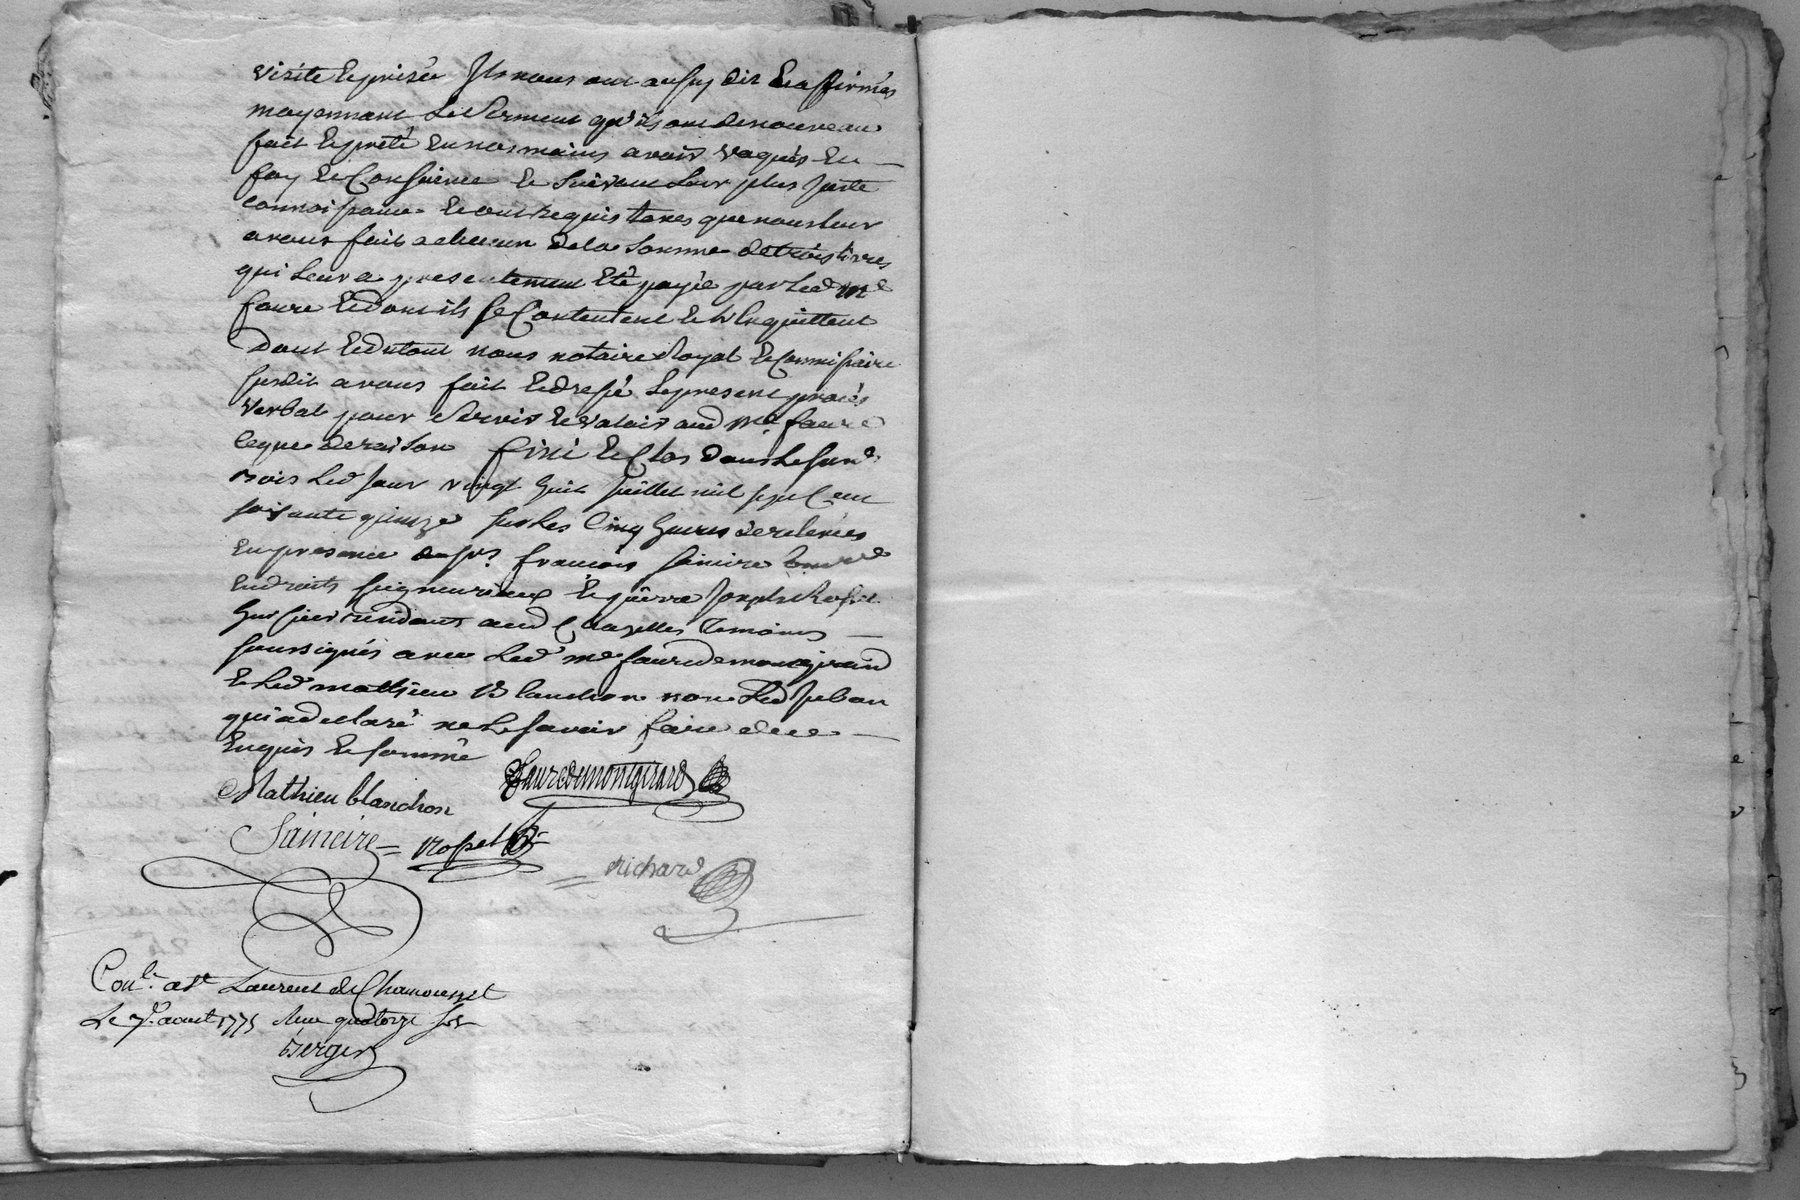 visite & prisée Ils nous ont aussy dit & affirmés
moyennant le serment qu'ils ont de nouveau
fait & prêté en nos mains avoir vaqués en
foy & conscience & suivant leur plus juste
connoissance & ont requis taxes que nous leur
avons fait a chacun de la somme de trois livres
qui leur a presentement été payée par led me
faure & dont ils se contentent & l'en quittent
dont & du tout nous notaire Royal & commissaire
susdit avons fait & dressé le present procès
verbal pour servir & valoir aud Me faure
ce que de raison fini & clos dans le susd
bois led jour vingt huit juillet mil sept cent
soixante quinze sur les cinq heures de relevées
en presence de sr françois saineire
en droits seigneuriaux & pierre joseph Rosset
huissier residants aud Chazelles temoins
soussignés avec led me faure de montgirard
& led mathieu Blanchon non led
qui a declaré ne le savoir faire de ce
enquis & sommé
Mathieu blanchon fauredemontgirard
Saineire rosset
richard
Conlé. a st Laurent de Chamousset
Le 7e. aout 1775 Reçu quatorze sols
Berger